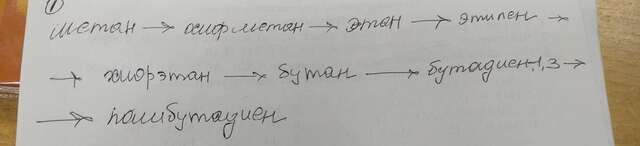 1
метан → хлорметан → этан → этилен →
→ хлорэтан → бутан → бутадиен-1,3 →
→ полибутадиен